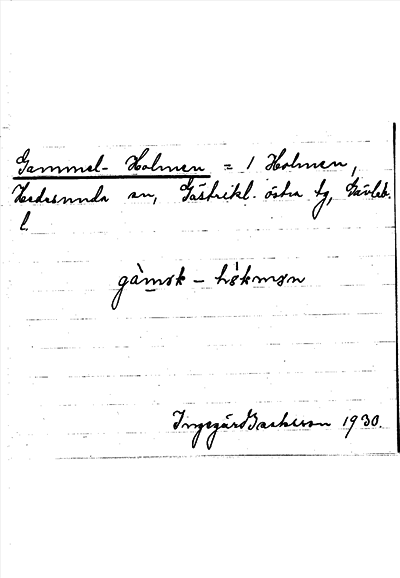 Gammel-Holmen = 1 Holmen,
Hedesunda sn, Gästrikl. östra tg, Gävleb.
l.
gàmøk - hɵ̀kmøn
Ingegärd Backeson 1930.